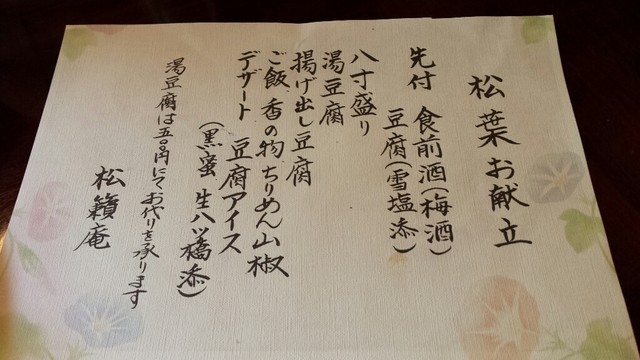 松葉お献立
先付 食前酒(梅酒)
豆腐(雪塩添)
八寸盛り
湯豆腐
揚げ出し豆腐
ご飯、香の物ちりめん山椒
デザート 豆腐アイス
(黒蜜 生八ッ橋添)
湯豆腐は五〇円にてお代りを承ります
松籟庵